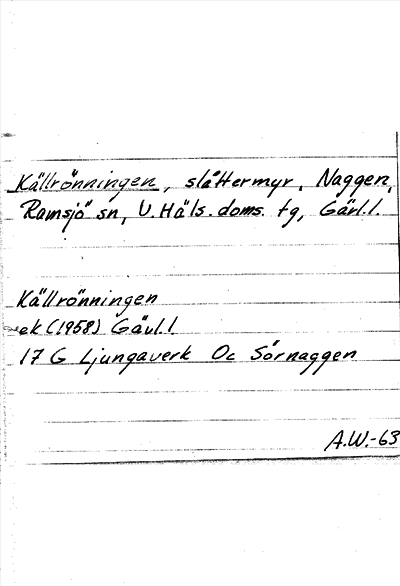 Källrönningen, slåttermyr, Naggen,
Ramsjö sn, V. Häls. doms. tg, Gävl.l.
Källrönningen
ek (1958) Gävl.l
17 G Ljungaverk Oc Sörnaggen
A.W.-63